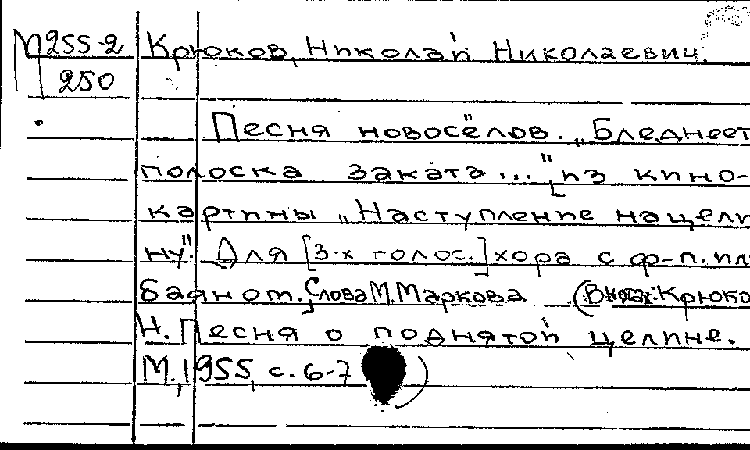 М255-2 Крюков, Николай Николаевич.
250
Песня новосёлов. „Бледнеет
полоска заката..." [из кино-
картины „Наступление на цели-
ну". Для [3-х голос.] хора с ф-п. или
баяном. Слова М. Маркова (В кн.: Крюков
Н. Песня о поднятой целине.
М., 1955, с. 6-7)